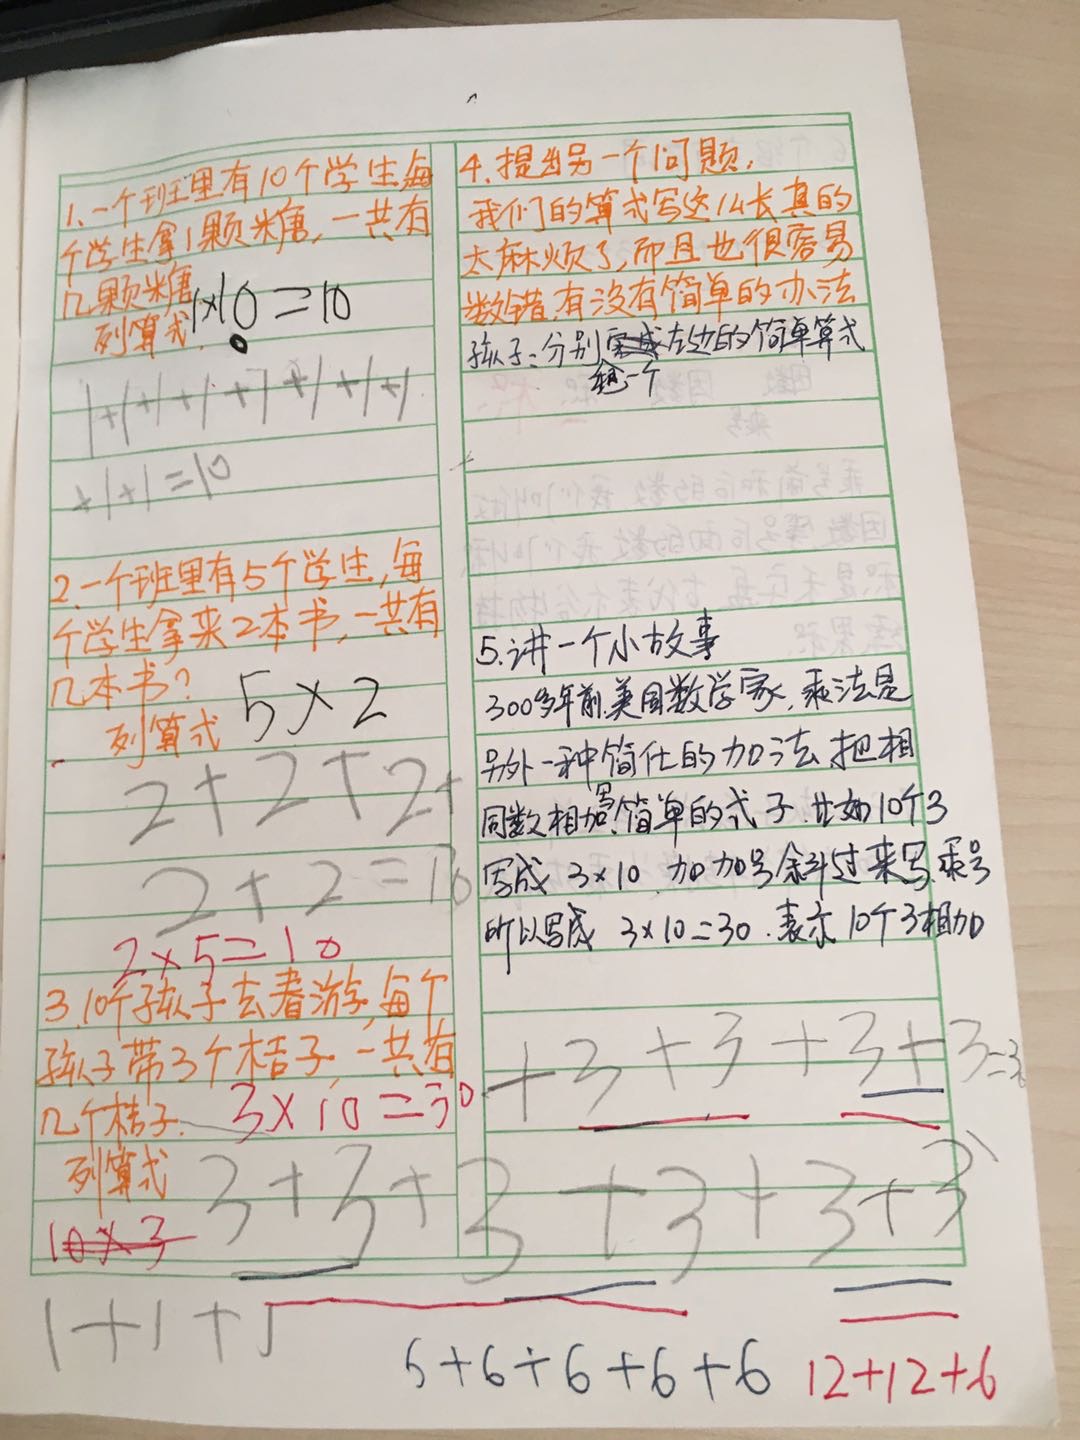 1、一个班里有10个学生每
个学生拿1颗糖,一共有
几颗糖
列算式. 1×10=10
1+1+1+1+1+1+1+1
+1+1=10
2.一个班里有5个学生,每
个学生拿来2本书,一共有
几本书?
列算式 5×2
2+2+2+
2+2=10
2×5=10
3.10个孩子去春游,每个
孩子带3个桔子,一共有
几个桔子. 3×10=30
列算式 3+3+3+3+3+3
10×3
1+1+1
4、提出另一个问题,
我们的算式写这么长真的
太麻烦了,而且也很容易
数错.有没有简单的办法
孩子:分别左边的简单算式
想一个
5.讲一个小故事
300多年前.美国数学家,乘法是
另外一种简化的加法.把相
同数相加写简单的式子.比如10个3
写成 3×10.加加号斜过来写.乘号
所以写成 3×10=30.表示10个3相加
+3+3+3+3=3
6+6+6+6+6
12+12+6